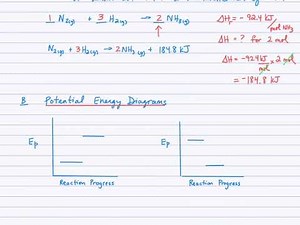 1 N₂(g) + 3 H₂(g) → 2 NH₃(g)
ΔH = -92.4 kJ/mol NH₃
ΔH = ? for 2 mol
N₂(g) + 3H₂(g) → 2NH₃(g) + 184.8 kJ
ΔH = -92.4 kJ/mol × 2 mol
= -184.8 kJ
B Potential Energy Diagrams
Ep
Ep
Reaction Progress
Reaction Progress